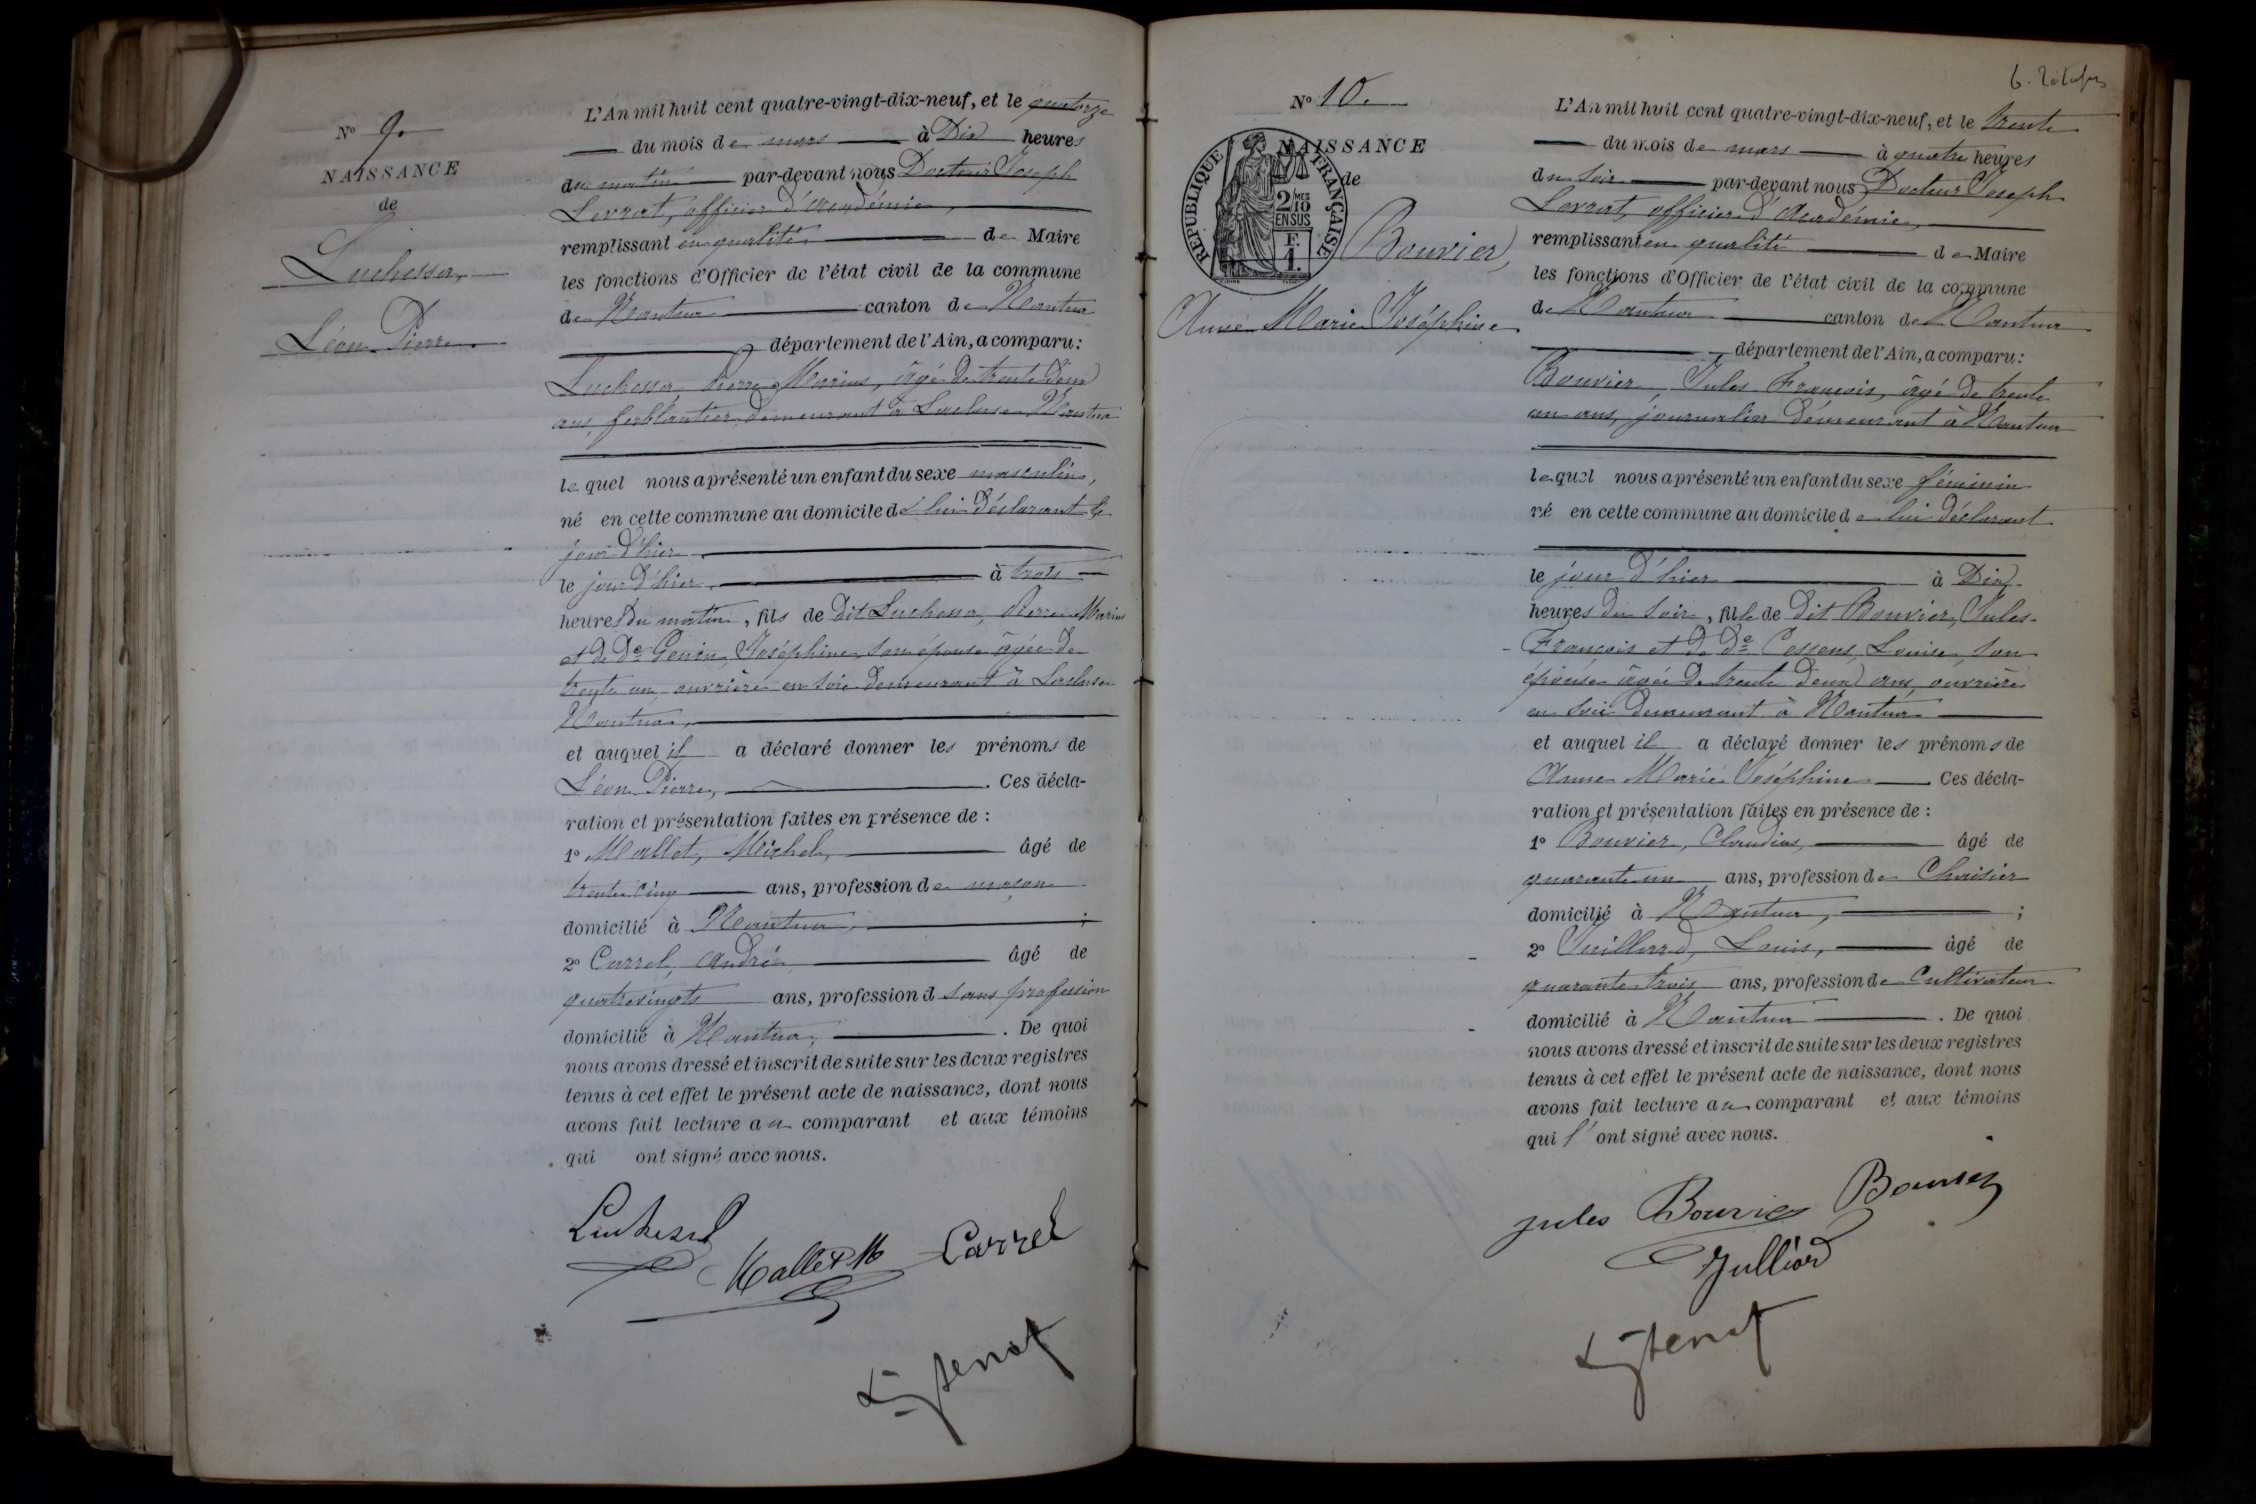 N° 9.
NAISSANCE
de
Luchessa,
Léon Pierre.
L'An mil huit cent quatre-vingt-dix-neuf, et le quatorze
du mois de mars à Dix heures
du matin par-devant nous Docteur Joseph
officier d'Académie,
remplissant en qualité de Maire
les fonctions d'Officier de l'état civil de la commune
de Nantua canton de Nantua
département de l'Ain, a comparu:
Luchessa, Pierre Marius, âgé de trente deux
ans, ferblantier demeurant à Lacluse Nantua
lequel nous a présenté un enfant du sexe masculin,
né en cette commune au domicile de lui déclarant le
jour d'hier
le jour d'hier, à trois
heures du matin, fils de dit Luchessa, Pierre Marius
et de De Genin, Joséphine, son épouse âgée de
trente un, ouvrière en soie demeurant à Lacluse
Nantua,
et auquel il a déclaré donner les prénoms de
Léon Pierre, . Ces décla-
ration et présentation faites en présence de :
1° Mallet, Michel, âgé de
trente cinq ans, profession de maçon
domicilié à Nantua, ;
2° Carrel, André âgé de
quatrevingts ans, profession d sans profession
domicilié à Nantua, . De quoi
nous avons dressé et inscrit de suite sur les deux registres
tenus à cet effet le présent acte de naissance, dont nous
avons fait lecture au comparant et aux témoins
qui ont signé avec nous.
Mallet M Carrel
N° 10.
NAISSANCE
de
RÉPUBLIQUE FRANÇAISE
2 MES
10
EN SUS
F.
1.
Bouvier,
Anne Marie Joséphine
L'An mil huit cent quatre-vingt-dix-neuf, et le trente
du mois de mars à quatre heures
du soir par-devant nous Docteur Joseph
officier d'Académie,
remplissant en qualité de Maire
les fonctions d'Officier de l'état civil de la commune
de Nantua canton de Nantua
département de l'Ain, a comparu:
Bouvier, Jules François, âgé de trente
un ans, journalier demeurant à Nantua
lequel nous a présenté un enfant du sexe féminin
né en cette commune au domicile de lui déclarant
le jour d'hier à Dix
heures du soir, fille de dit Bouvier, Jules-
François et de De Cessens, Louise, son
épouse âgée de trente deux ans, ouvrière
en soie demeurant à Nantua
et auquel il a déclaré donner les prénoms de
Anne Marie Joséphine Ces décla-
ration et présentation faites en présence de :
1° Bouvier, Claudius, âgé de
quarante un ans, profession de Chaisier
domicilié à Nantua, ;
2° Juillard, Louis, âgé de
quarante trois ans, profession de Cultivateur
domicilié à Nantua . De quoi
nous avons dressé et inscrit de suite sur les deux registres
tenus à cet effet le présent acte de naissance, dont nous
avons fait lecture au comparant et aux témoins
qui l'ont signé avec nous.
Jules Bouvier Bouvier